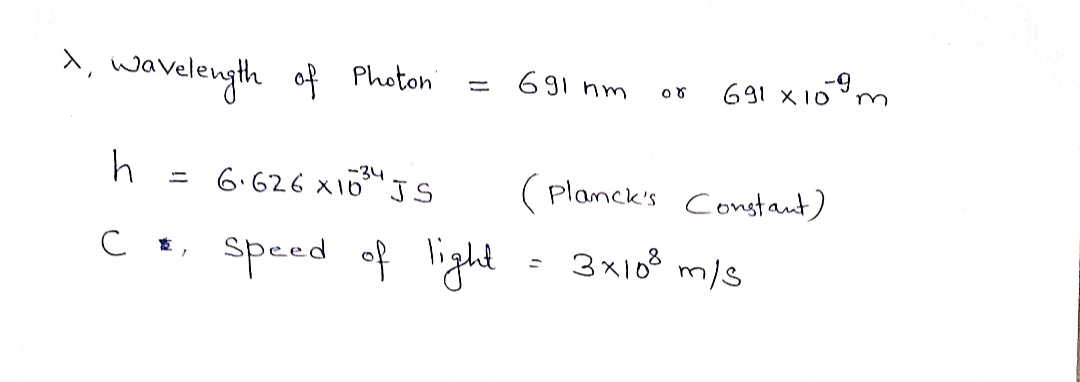 λ, wavelength of Photon = 691 nm or 691 × 10⁻⁹ m
h = 6.626 × 10⁻³⁴ J S (Planck's Constant)
C , Speed of light = 3×10⁸ m/s